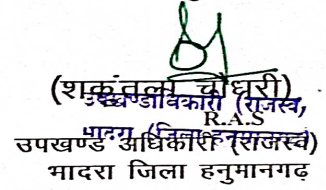 (शकुंतला चौधरी)
उपखण्डाधिकारी (राजस्व,
R.A.S
भादरा (जिला हनुमानगढ़)
उपखण्ड अधिकारी (राजस्व)
भादरा जिला हनुमानगढ़